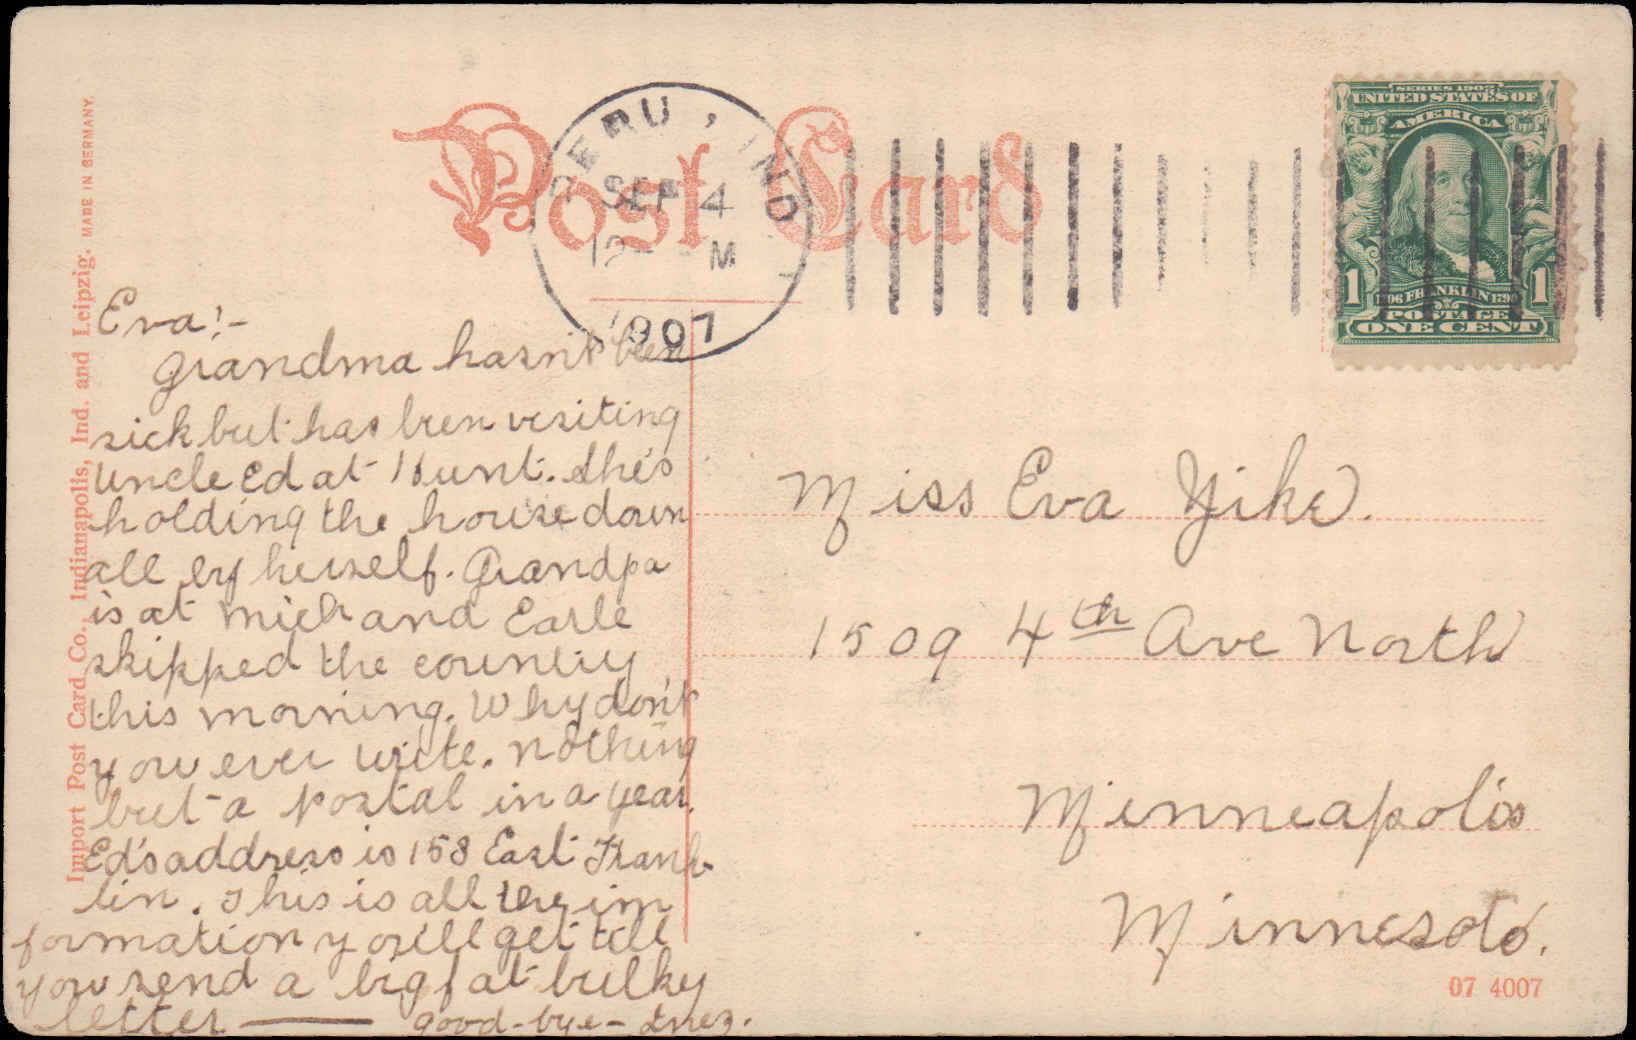 Post Card
PERU, IND.
SEP 4
12 - M
1907
SERIES 1902
UNITED STATES OF
AMERICA
1706 FRANKLIN 1790
1 POSTAGE 1
ONE CENT
Import Post Card Co., Indianapolis, Ind. and Leipzig. MADE IN GERMANY.
Eva:-
Grandma hasn't been
sick but has been visiting
Uncle Ed at Hunt. She's
holding the house down
all by herself. Grandpa
is at Mich and Earle
skipped the country
this morning. Why don't
you ever write. Nothing
but a postal in a year.
Ed's address is 158 East Frank-
lin. This is all the im
formation you'll get till
you send a big fat bulky
letter — good-bye - Inez.
Miss Eva
1509 4th Ave North
Minneapolis
Minnesota.
07 4007